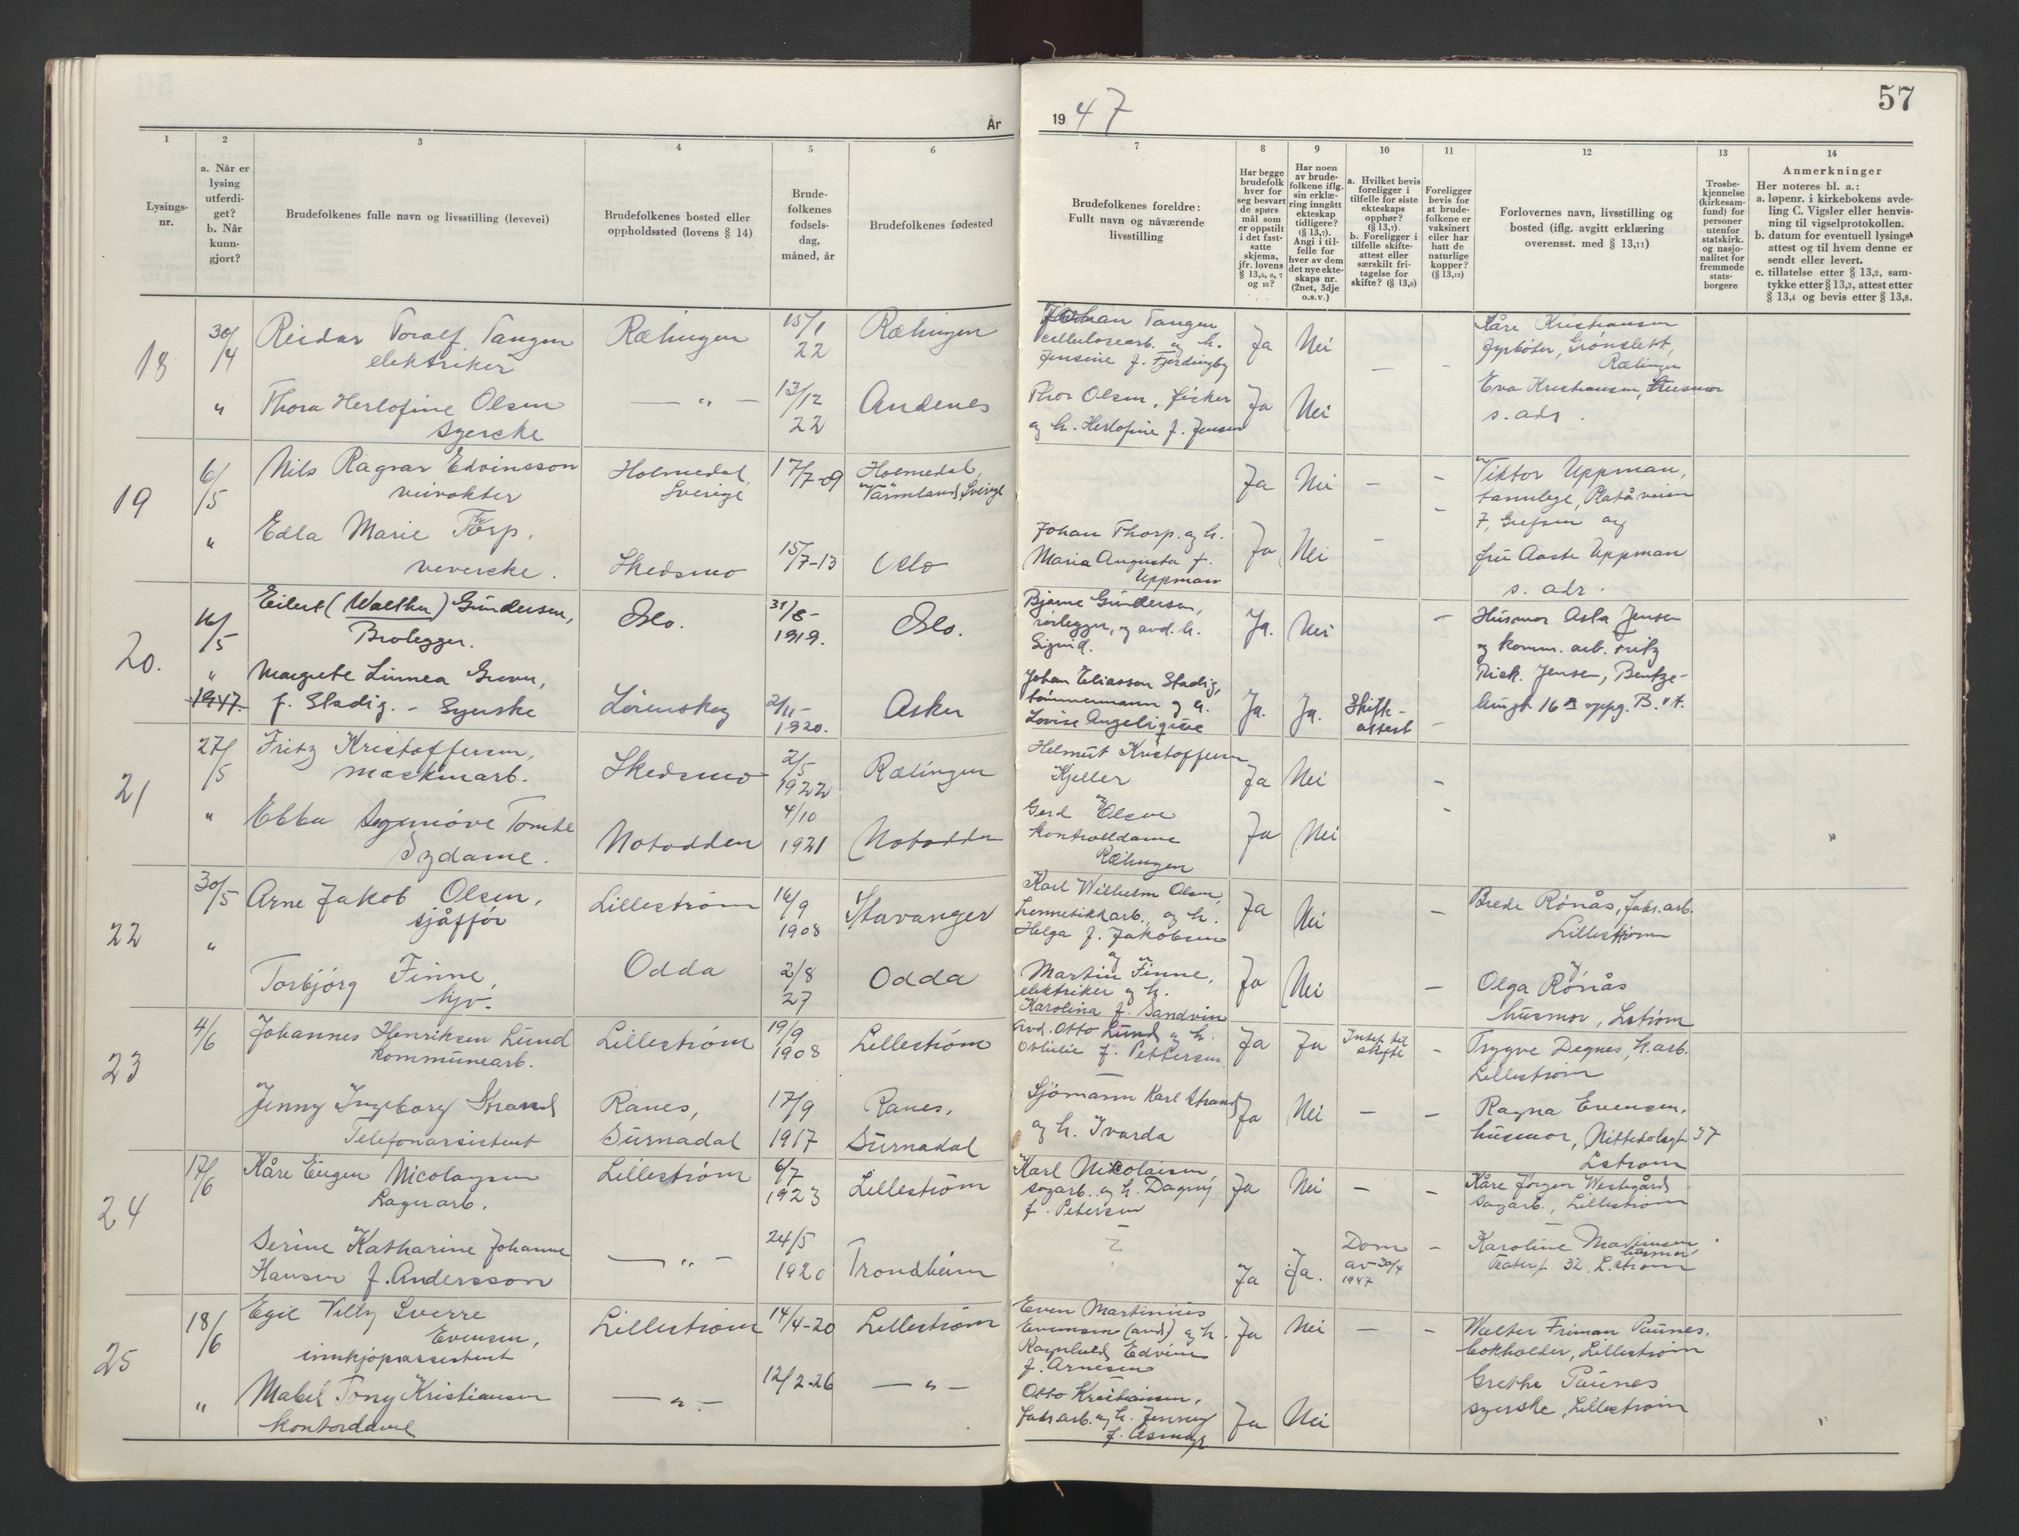 År
19 47
57
1
2
3
4
5
6
7
8
9
10
11
12
13
14
Lysings-
nr.
a. Når er
lysing
utferdi-
get?
b. Når
kunn-
gjort?
Brudefolkenes fulle navn og livsstilling (levevei)
Brudefolkenes bosted eller
oppholdssted (lovens § 14)
Brude-
folkenes
fødsels-
dag,
måned, år
Brudefolkenes fødested
Brudefolkenes foreldre:
Fullt navn og nåværende
livsstilling
Har begge
brudefolk
hver for
seg besvart
de spørs
mål som
er oppstilt
i det fast-
satte
skjema,
jfr. lovens
§ 13,5, 6, 7
og 10?
Har noen
av brude-
folkene iflg.
sin erklæ-
ring inngått
ekteskap
tidligere?
(§ 13,7)
Angi i til-
felle for
hver av dem
det nye ekte-
skaps nr.
(2net, 3dje
o.s.v.)
a. Hvilket bevis
foreligger i
tilfelle for siste
ekteskaps
opphør?
(§ 13,7).
b. Foreligger i
tilfelle skifte-
attest eller
særskilt fri-
tagelse for
skifte? (§ 13,9)
Foreligger
bevis for
at brude-
folkene er
vaksinert
eller har
hatt de
naturlige
kopper?
(§ 13,12)
Forlovernes navn, livsstilling og
bosted (iflg. avgitt erklæring
overensst. med § 13,11)
Trosbe-
kjennelse
(kirkesam-
fund) for
personer
utenfor
statskirk.
og nasjo-
nalitet for
fremmede
stats-
borgere
Anmerkninger
Her noteres bl. a.:
a. løpenr. i kirkebokens avde-
ling C. Vigsler eller henvis-
ning til vigselprotokollen.
b. datum for eventuell lysings-
attest og til hvem denne er
sendt eller levert.
c. tillatelse etter § 13,2, sam-
tykke etter § 13,3, attest etter
§ 13,4 og bevis etter § 13,8.
18 30/4 Reidar Toralf Tangen Rælingen 15/1 22 Rælingen Johan Tangen Ja Nei Kåre Kristiansen
elektriker cellulosearb. og h. fyrbøter, Grønslett,
Jensine f. Fjerdingby Rælingen
" Thora Herlofine Olsen — " — 13/12 22 Andenes Thor Olsen, fisker Ja Nei — - Eva Kristiansen, husmor
syerske og h. Herlofine f. Jensen s. adr.
19 6/5 Nils Ragnar Edvinsson Holmedal, Sverige 17/7-09 Holmedal, Värmland, Sverige Ja Nei - - Viktor Uppman,
veivokter tannlege, Platåveien
7, Grefsen og
" Edla Marie Torp, Skedsmo 15/7-13 Oslo Johan Thorp. og h. Ja Nei - - fru Aasta Uppman
veverske. Maria Augusta f. Uppman s. adr.
20. 16/5 Eilert (Walther) Gundersen, Oslo. 31/8-1919. Oslo. Bjarne Gundersen, Ja. Nei - Husmor Asla Jensen
Brolegger. rørlegger, og avd. h. og komm. arb. Fritz
Sigrid. Rick. Jensen, Bentze-
" Margrete Linnea Gruer, Lørenskog 2/11-1920. Asker Johan Eliasson Stadig, Ja. Ja. Skifte- - brugt 16 a oppg. B. "4.
1947. f. Stadig. - Syerske tømmermann og h. attest
Lovise Angelique
21 27/5 Fritz Kristoffersen, Skedsmo 2/5 1922 Rælingen Helmut Kristoffersen Ja Nei -
maskinarb. Kjeller
" Ebba Synnøve Tomte Notodden 4/10 1921 Notodden Gerd Olsen Ja Nei - "
Sydame. kontrolldame
Rælingen
22 30/5 Arne Jakob Olsen, Lillestrøm 16/9 1908 Stavanger Karl Wilhelm Olsen, Ja Nei - Brede Rønås, fabr.arb.
sjåfør hermetikkarb., og h. Lillestrøm
Helga f. Jakobsen
" Torbjørg Finne, Odda 2/8 27 Odda Martin Finne, Ja Nei - Olga Rønås
hjv. elektriker og h. husmor, Lstrøm
Karolina f. Sandvin
23 4/6 Johannes Henriksen Lund Lillestrøm 19/9 1908 Lillestrøm Avd. Otto Lund og h. Ja Ja Intet til - Trygve Degnes, h.arb.
kommunearb. Othilie f. Pettersen skifte Lillestrøm
Jenny Ingeborg Strand Ranes, 17/9 Ranes, Sjømann Karl Strand Ja Nei - - Ragna Evensen,
Telefonassistent Surnadal 1917 Surnadal og h. Ivarda husmor, Nittedalsgt. 37
Lstrøm
24 17/6 Kåre Eugen Nicolaysen Lillestrøm 6/7 1923 Lillestrøm Karl Nicolaisen Ja Nei - - Kåre Jørgen Westgård
Lagerarb. sagarb. og h. Dagny sagarb., Lillestrøm
f. Petersen
Serine Katharine Johanne — " — 24/5 1920 Trondheim ? Ja Ja. Dom - Karoline Martinsen
Hansen f. Andersson av 30/4 1947 husmor Teaterg. 32 L.strøm
25 18/6 Egil Villy Sverre Lillestrøm 14/4-20 Lillestrøm Even Martinius Ja Nei - - Walter Friman Paunes,
Evensen, Evensen (avd) og h. bokholder, Lillestrøm
innkjøpsassistent Ragnhild Edvine
f. Arnesen
" Mabel Tony Kristiansen — " — 12/2-26 — " — Otto Kristiansen, Ja Nei Grethe Paunes
kontordame fabr.arb. og h. Jenny syerske, Lillestrøm